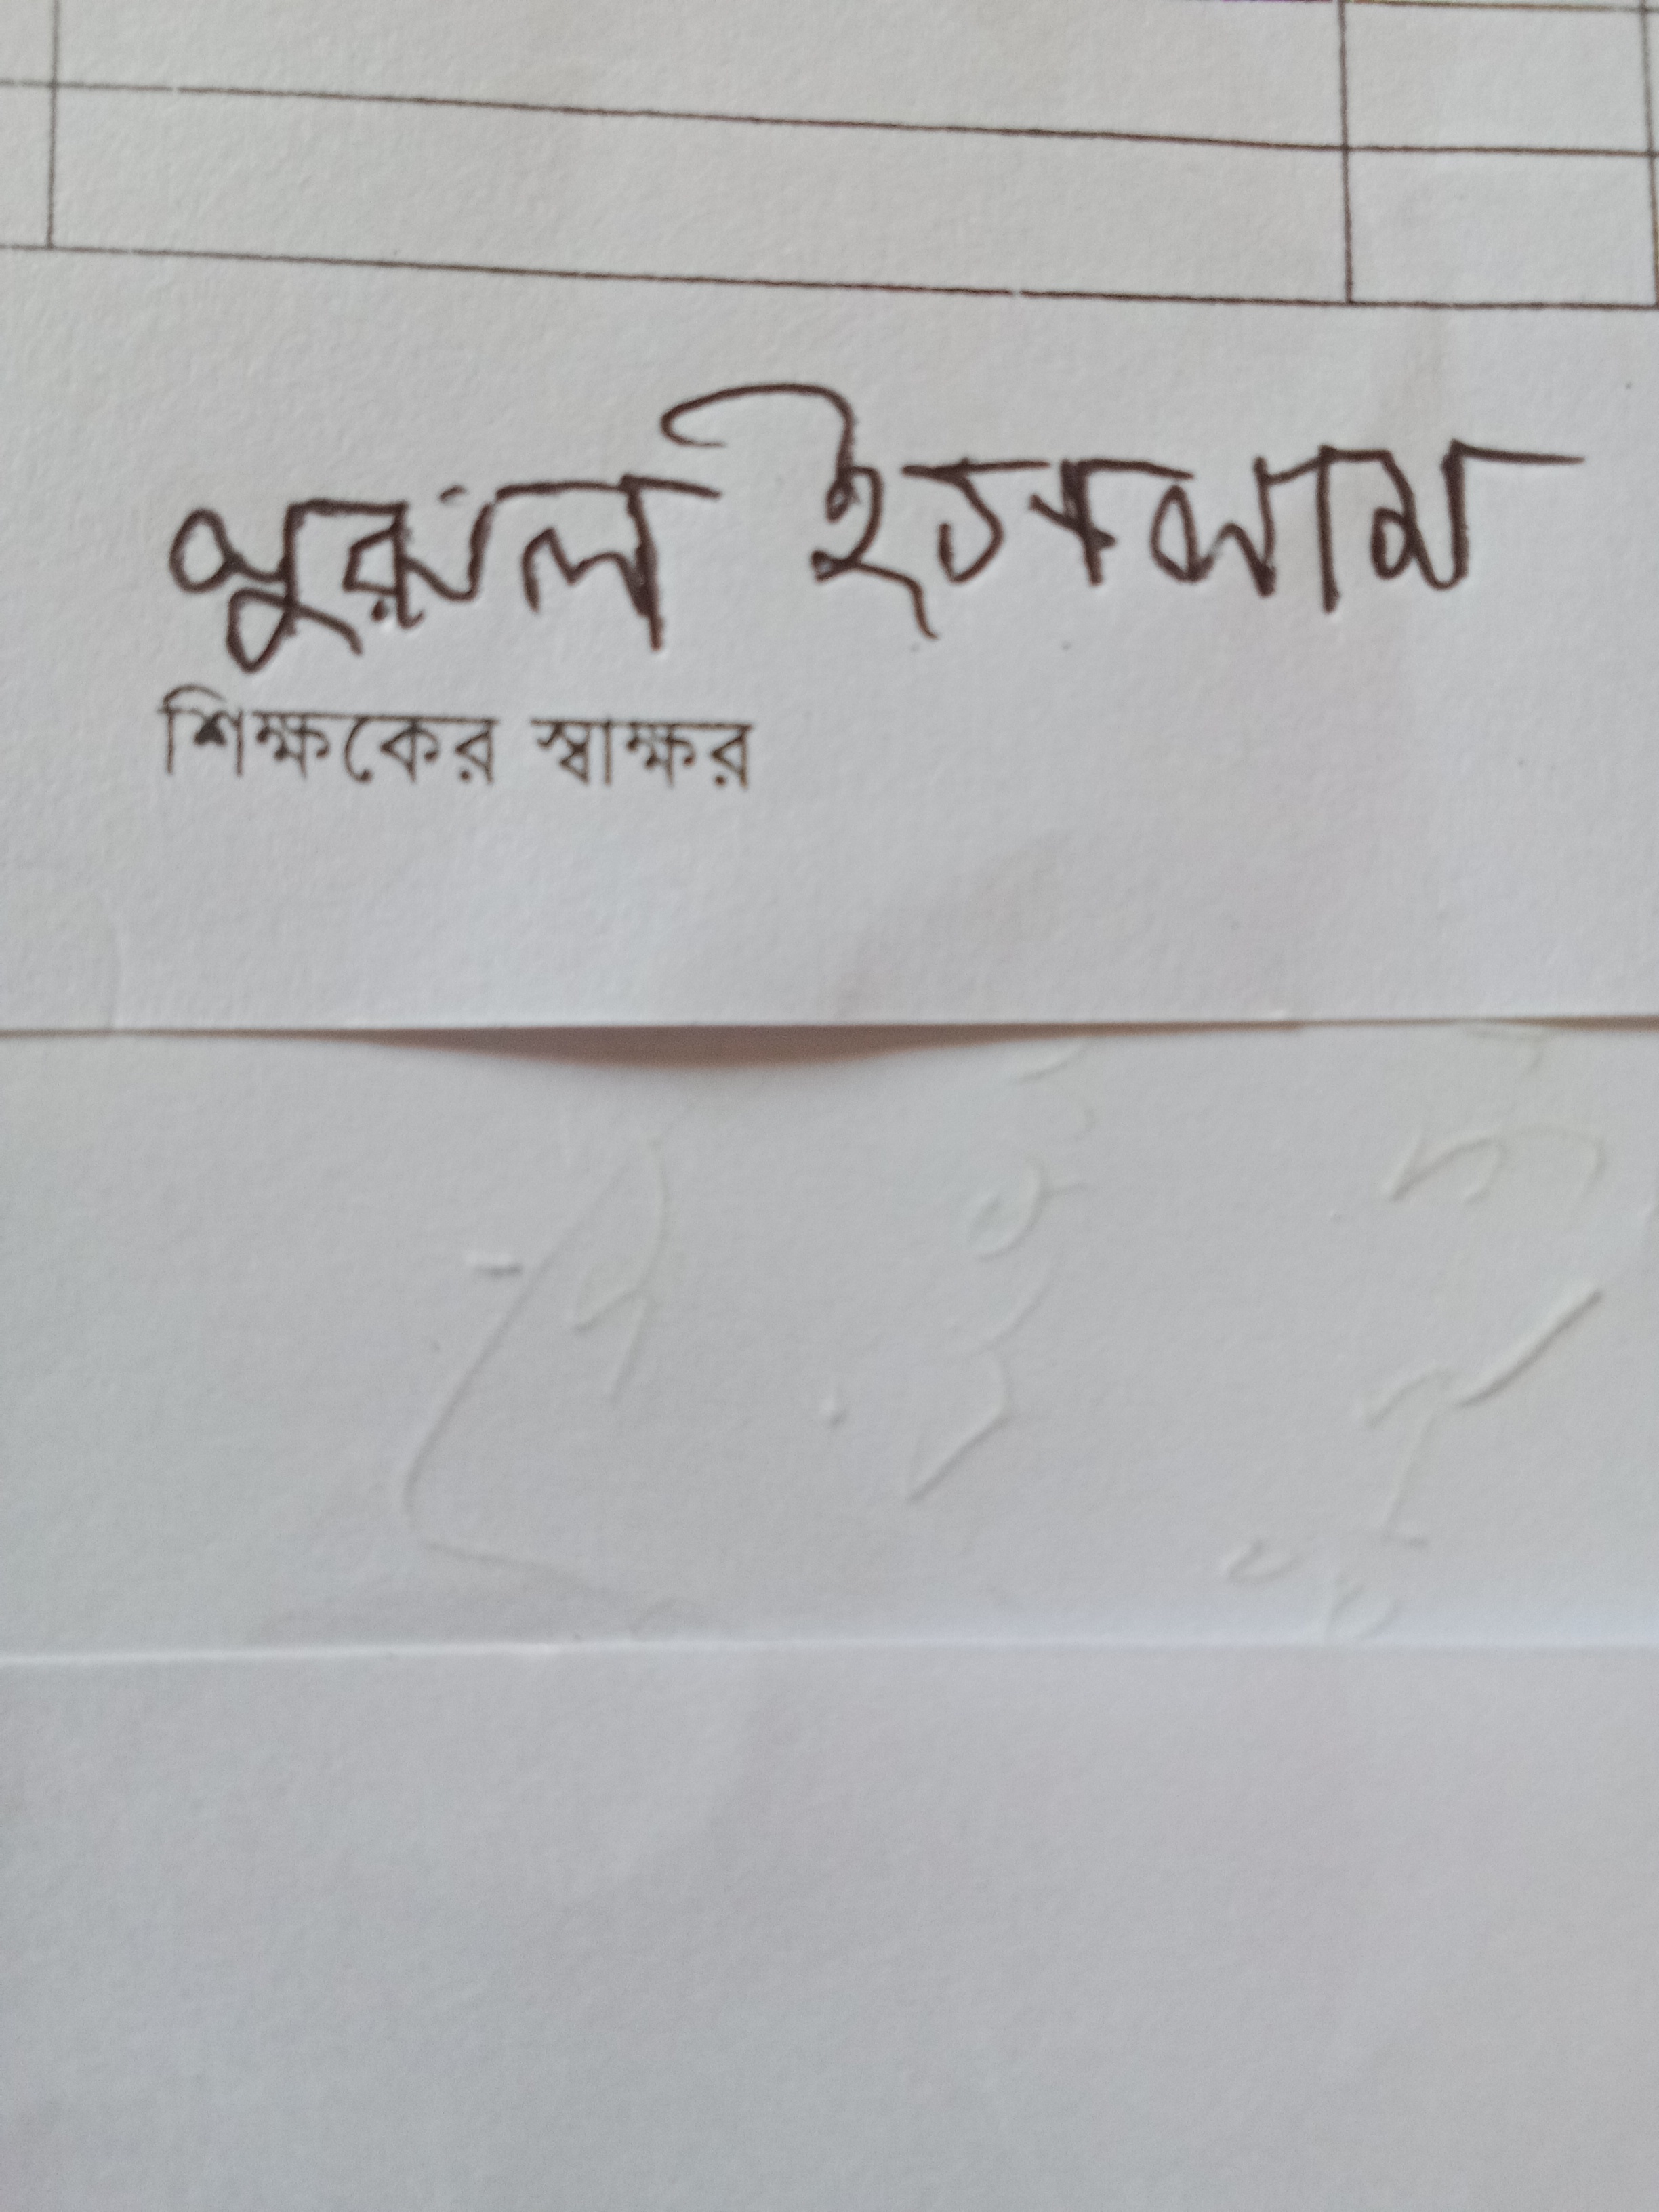 নুরুল ইসলাম
শিক্ষকের স্বাক্ষর